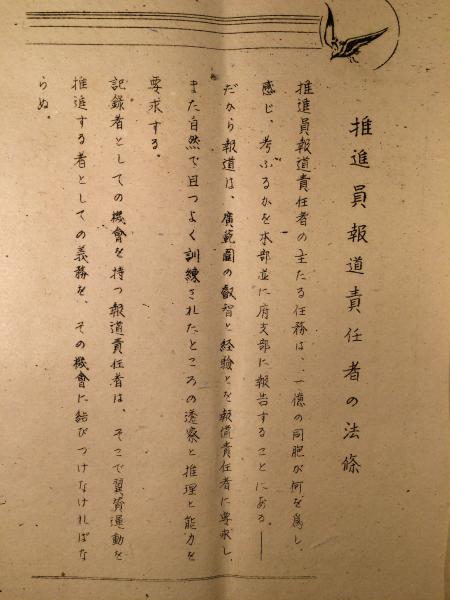 推進員報道責任者の法條
推進員報道責任者の主たる任務は、一億の同胞が何を為し、
感じ、考ふるかを本部並に府支部に報告することにある。――
だから報道は、廣範圍の叡智と経験とを報道責任者に要求し、
また自然で且つよく訓練されたところの透察と推理と能力を
要求する。
記録者としての機會を持つ報道責任者は、そこで翼賛運動を
推進する者としての義務を、その機會に結びつけなければな
らぬ。